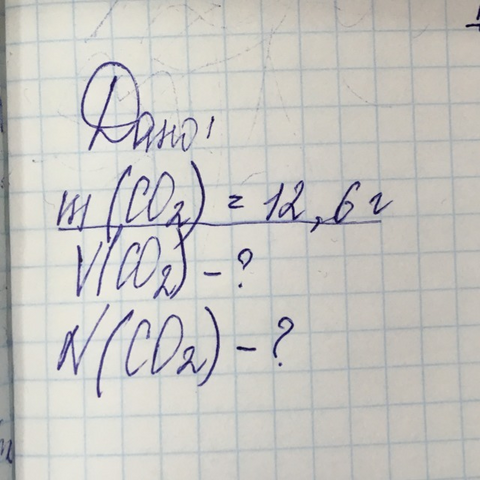 Дано:
m(CO2) = 12,6 г
V(CO2) - ?
N(CO2) - ?